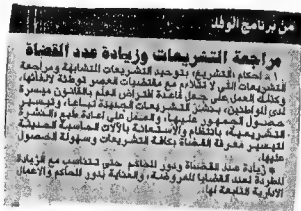 من برنامج الوفد
مراجعة التشريعات وزيادة عدد القضاة
١ - أحكام التشريع، بتوحيد التشريعات المتشابهة ومراجعة
التشريعات التى لا تتلاءم مع مقتضيات العصر توطئة لإلغائها،
وكذلك العمل على جعل قاعدة افتراض العلم بالقانون ميسرة
لدى المواطنين، بنشر التشريعات الجديدة تباعا، وتيسير
الحصول عليها، والعمل على إعادة طبع والنشر
التشريعية، بانتظام والاستعانة بالآلات الحاسبة الحديثة
لتيسير معرفة القضاة بكافة التشريعات وسهولة الحصول
عليها.
• زيادة عدد القضاة ودور المحاكم حتى تتناسب مع الزيادة
المطردة لعدد القضايا المعروضة، والعناية بدور المحاكم والأعمال
الادارية التابعة لها.